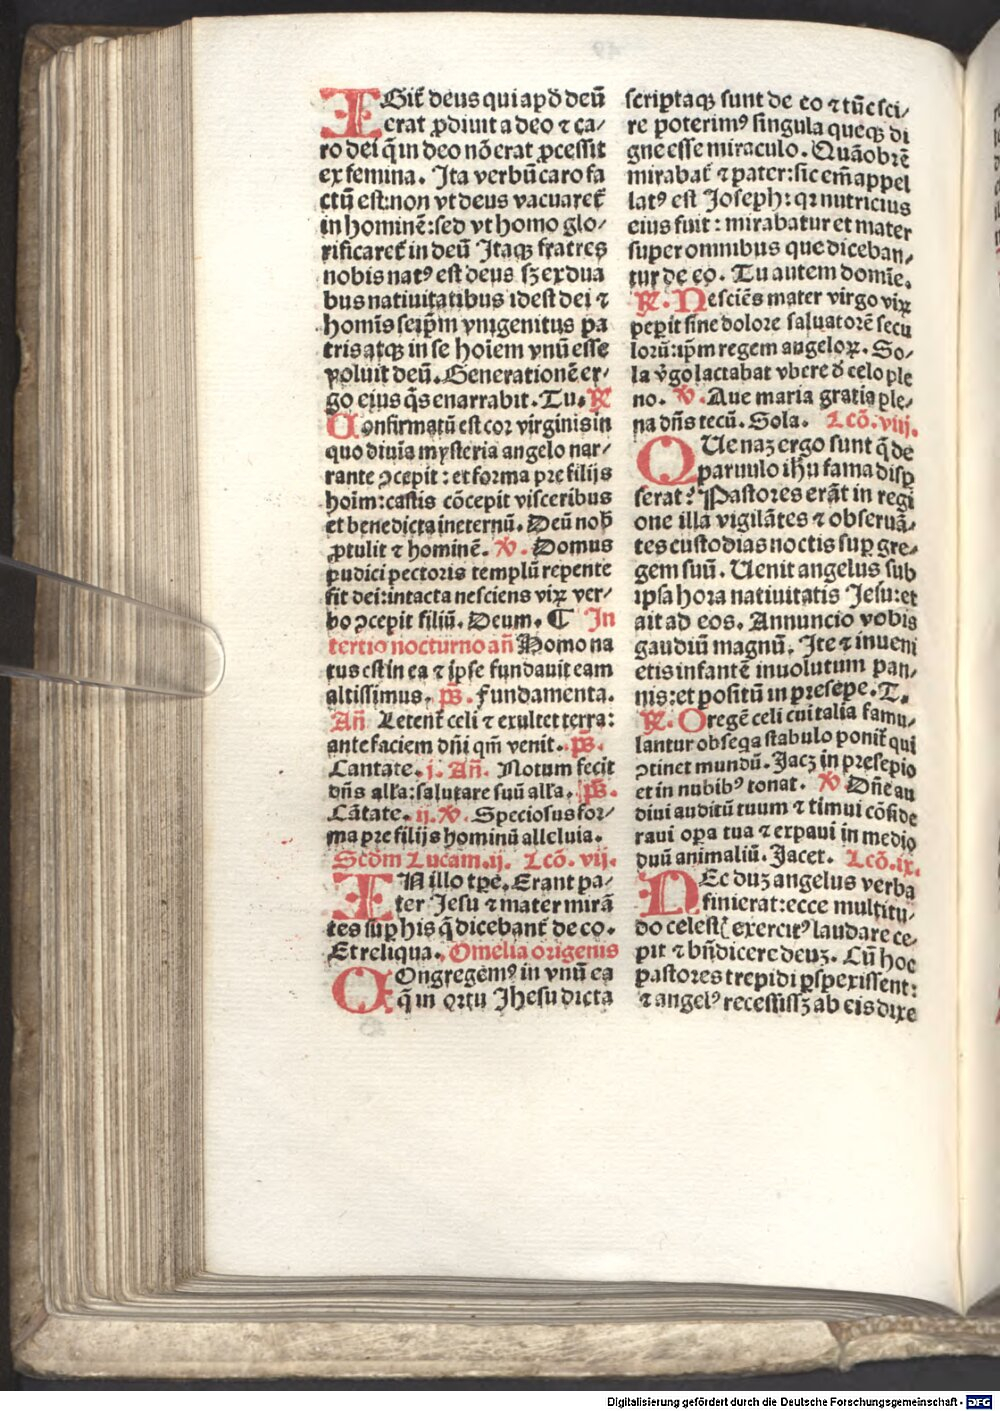 IGit᷑ deus qui apð deū
erat ꝓdiuit a deo ⁊ ca/
ro dei q̄ in deo nō erat ꝓcessit
ex femina. Ita verbū caro fa
ctū est:non vt deus vacuaret᷑
in hominē:sed vt homo glo/
rificaret᷑ in deū Itaqꝫ fratres
nobis natꝰ est deus sꝫ ex dua
bus natiuitatibus idest dei ⁊
homīs seip̄m vnigenitus pa
tris atqꝫ in se hoīem vnū esse
voluit deū. Generationē er/
go eius q̄s enarrabit. Tu. ℞
Confirmatū est cor virginis in
quo diuīa mysteria angelo nar/
rante ꝯcepit: et forma pre filijs
hoīm:castis cōcepit visceribus
et benedicta ineternū. Deū nob̄
ꝓtulit ⁊ hominē. ℣. Domus
pudici pectoris templū repente
fit dei:intacta nesciens viꝝ ver/
bo ꝯcepit filiū. Deum. ¶ In
tertio nocturno añ Homo na
tus est in ea ⁊ ipse fundauit eam
altissimus. ps̄. Fundamenta.
Añ Letent᷑ celi ⁊ exultet terra:
ante faciem dñi qm̄ venit. ps̄.
Cantate. j. Añ. Notum fecit
dñs alľa:salutare suū alľa. ps̄.
Cātate. ij. ℣. Speciosus for/
ma pre filijs hominū alleluia.
Scdm̄ Lucam.ij. Lcō. vij.
IN illo tp̄e. Erant pa/
ter Jesu ⁊ mater mirā
tes suꝑ his q̄ dicebant᷑ de eo.
Et reliqua. Omelia origenis
COngregemꝰ in vnū ea
q̄ in ortu Jhesu dicta
scriptaqꝫ sunt de eo ⁊ tūc sci/
re poterimꝰ singula queqꝫ di
gne esse miraculo. Quāobrē
mirabat᷑ ⁊ pater:sic em̄ appel
latꝰ est Joseph: qꝛ nutricius
eius fuit: mirabatur et mater
super omnibus que diceban/
tur de eo. Tu autem domīe.
℞. Nesciēs mater virgo viꝝ
peperit sine dolore saluatorē secu
lorū:ip̄m regem angeloꝝ. So/
la v̓go lactabat vbere đ celo ple
no. ℣. Aue maria gratia ple/
na dñs tecū. Sola. Lcō.viij.
QUe naꝫ ergo sunt q̄ de
paruulo ihū fama disꝑ
serat? Pastores erāt in regi
one illa vigilātes ⁊ obseruā/
tes custodias noctis suꝑ gre/
gem suū. Uenit angelus sub
ipsa hora natiuitatis Jesu:et
ait ad eos. Annuncio vobis
gaudiū magnū. Ite ⁊ inueni
etis infantē inuolutum pan/
nis:et positū in presepe. T.
℞. O regē celi cui talia famu/
lantur obseqa stabulo ponit᷑ qui
ꝯtinet mundū. Jacꝫ in presepio
et in nubibꝰ tonat. ℣ Dñe au
diui auditū tuum ⁊ timui cōside
raui oꝑa tua ⁊ expaui in medio
duū animaliū. Jacet. Lcō.ix.
NEc duꝫ angelus verba
finierat:ecce multitu/
do celestꝭ exercitꝰ laudare ce/
pit ⁊ bn̄dicere deuꝫ. Cū hoc
pastores trepidi ꝑspexissent:
⁊ angelꝰ recessissꝫ ab eis dixe
Digitalisierung gefördert durch die Deutsche Forschungsgemeinschaft - DFG